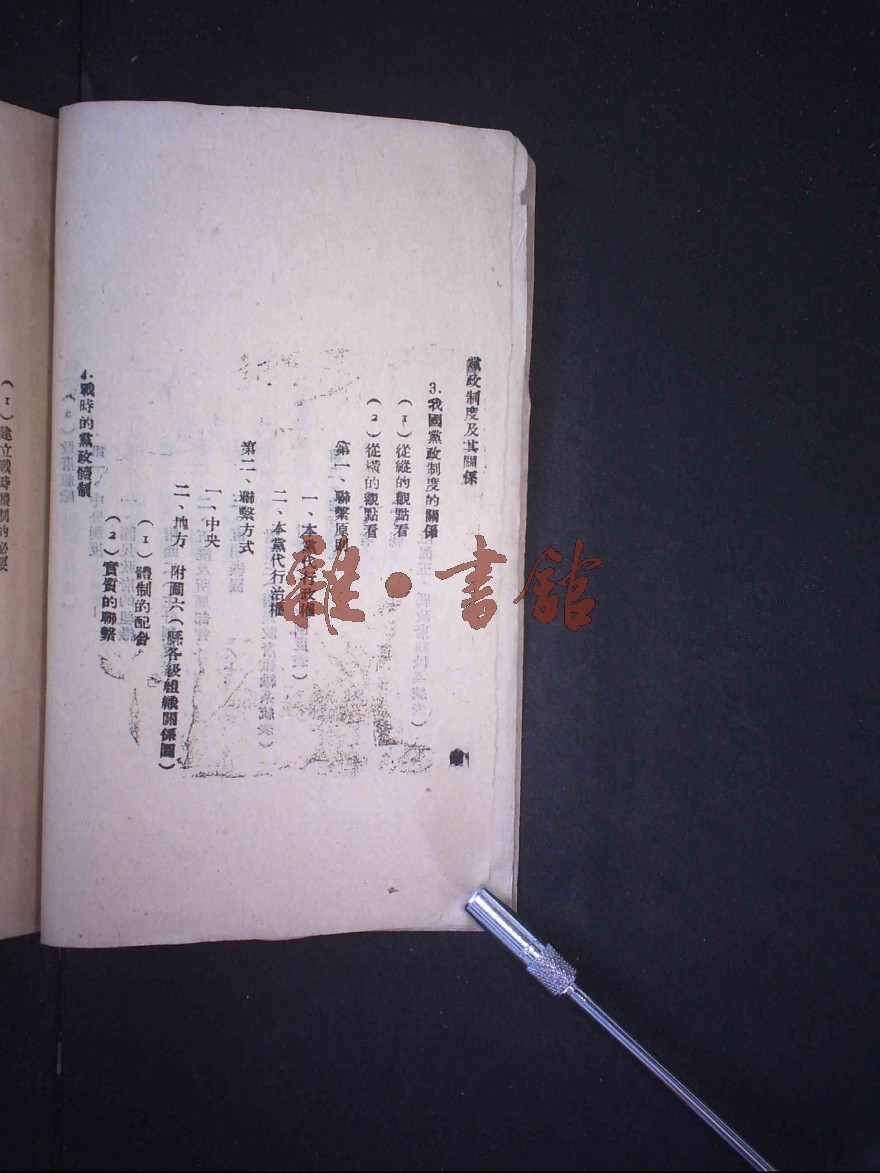 黨政制度及其關係
3.我國黨政制度的關係
(1)從縱的觀點看
(2)從橫的觀點看
第一、聯繫原則
一、本黨代行政權
二、本黨代行治權
第二、聯繫方式
一、中央
二、地方 附圖六(縣各級組織關係圖)
(1)體制的配合
(2)實質的聯繫
4.戰時的黨政體制
(1)建立戰時體制的必要
雜·書館